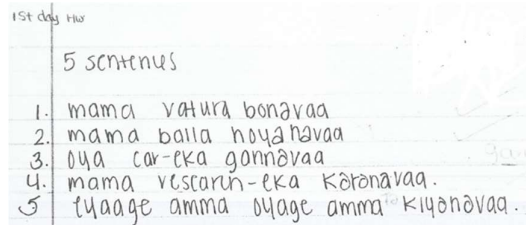 1st day HW
5 sentenus
1. mama vatura bonəvaa
2. mama balla hoyanavaa
3. oya car-eka gannəvaa
4. mama research-eka kərənavaa.
5 eyaage amma oyage amma kiyənəvaa.